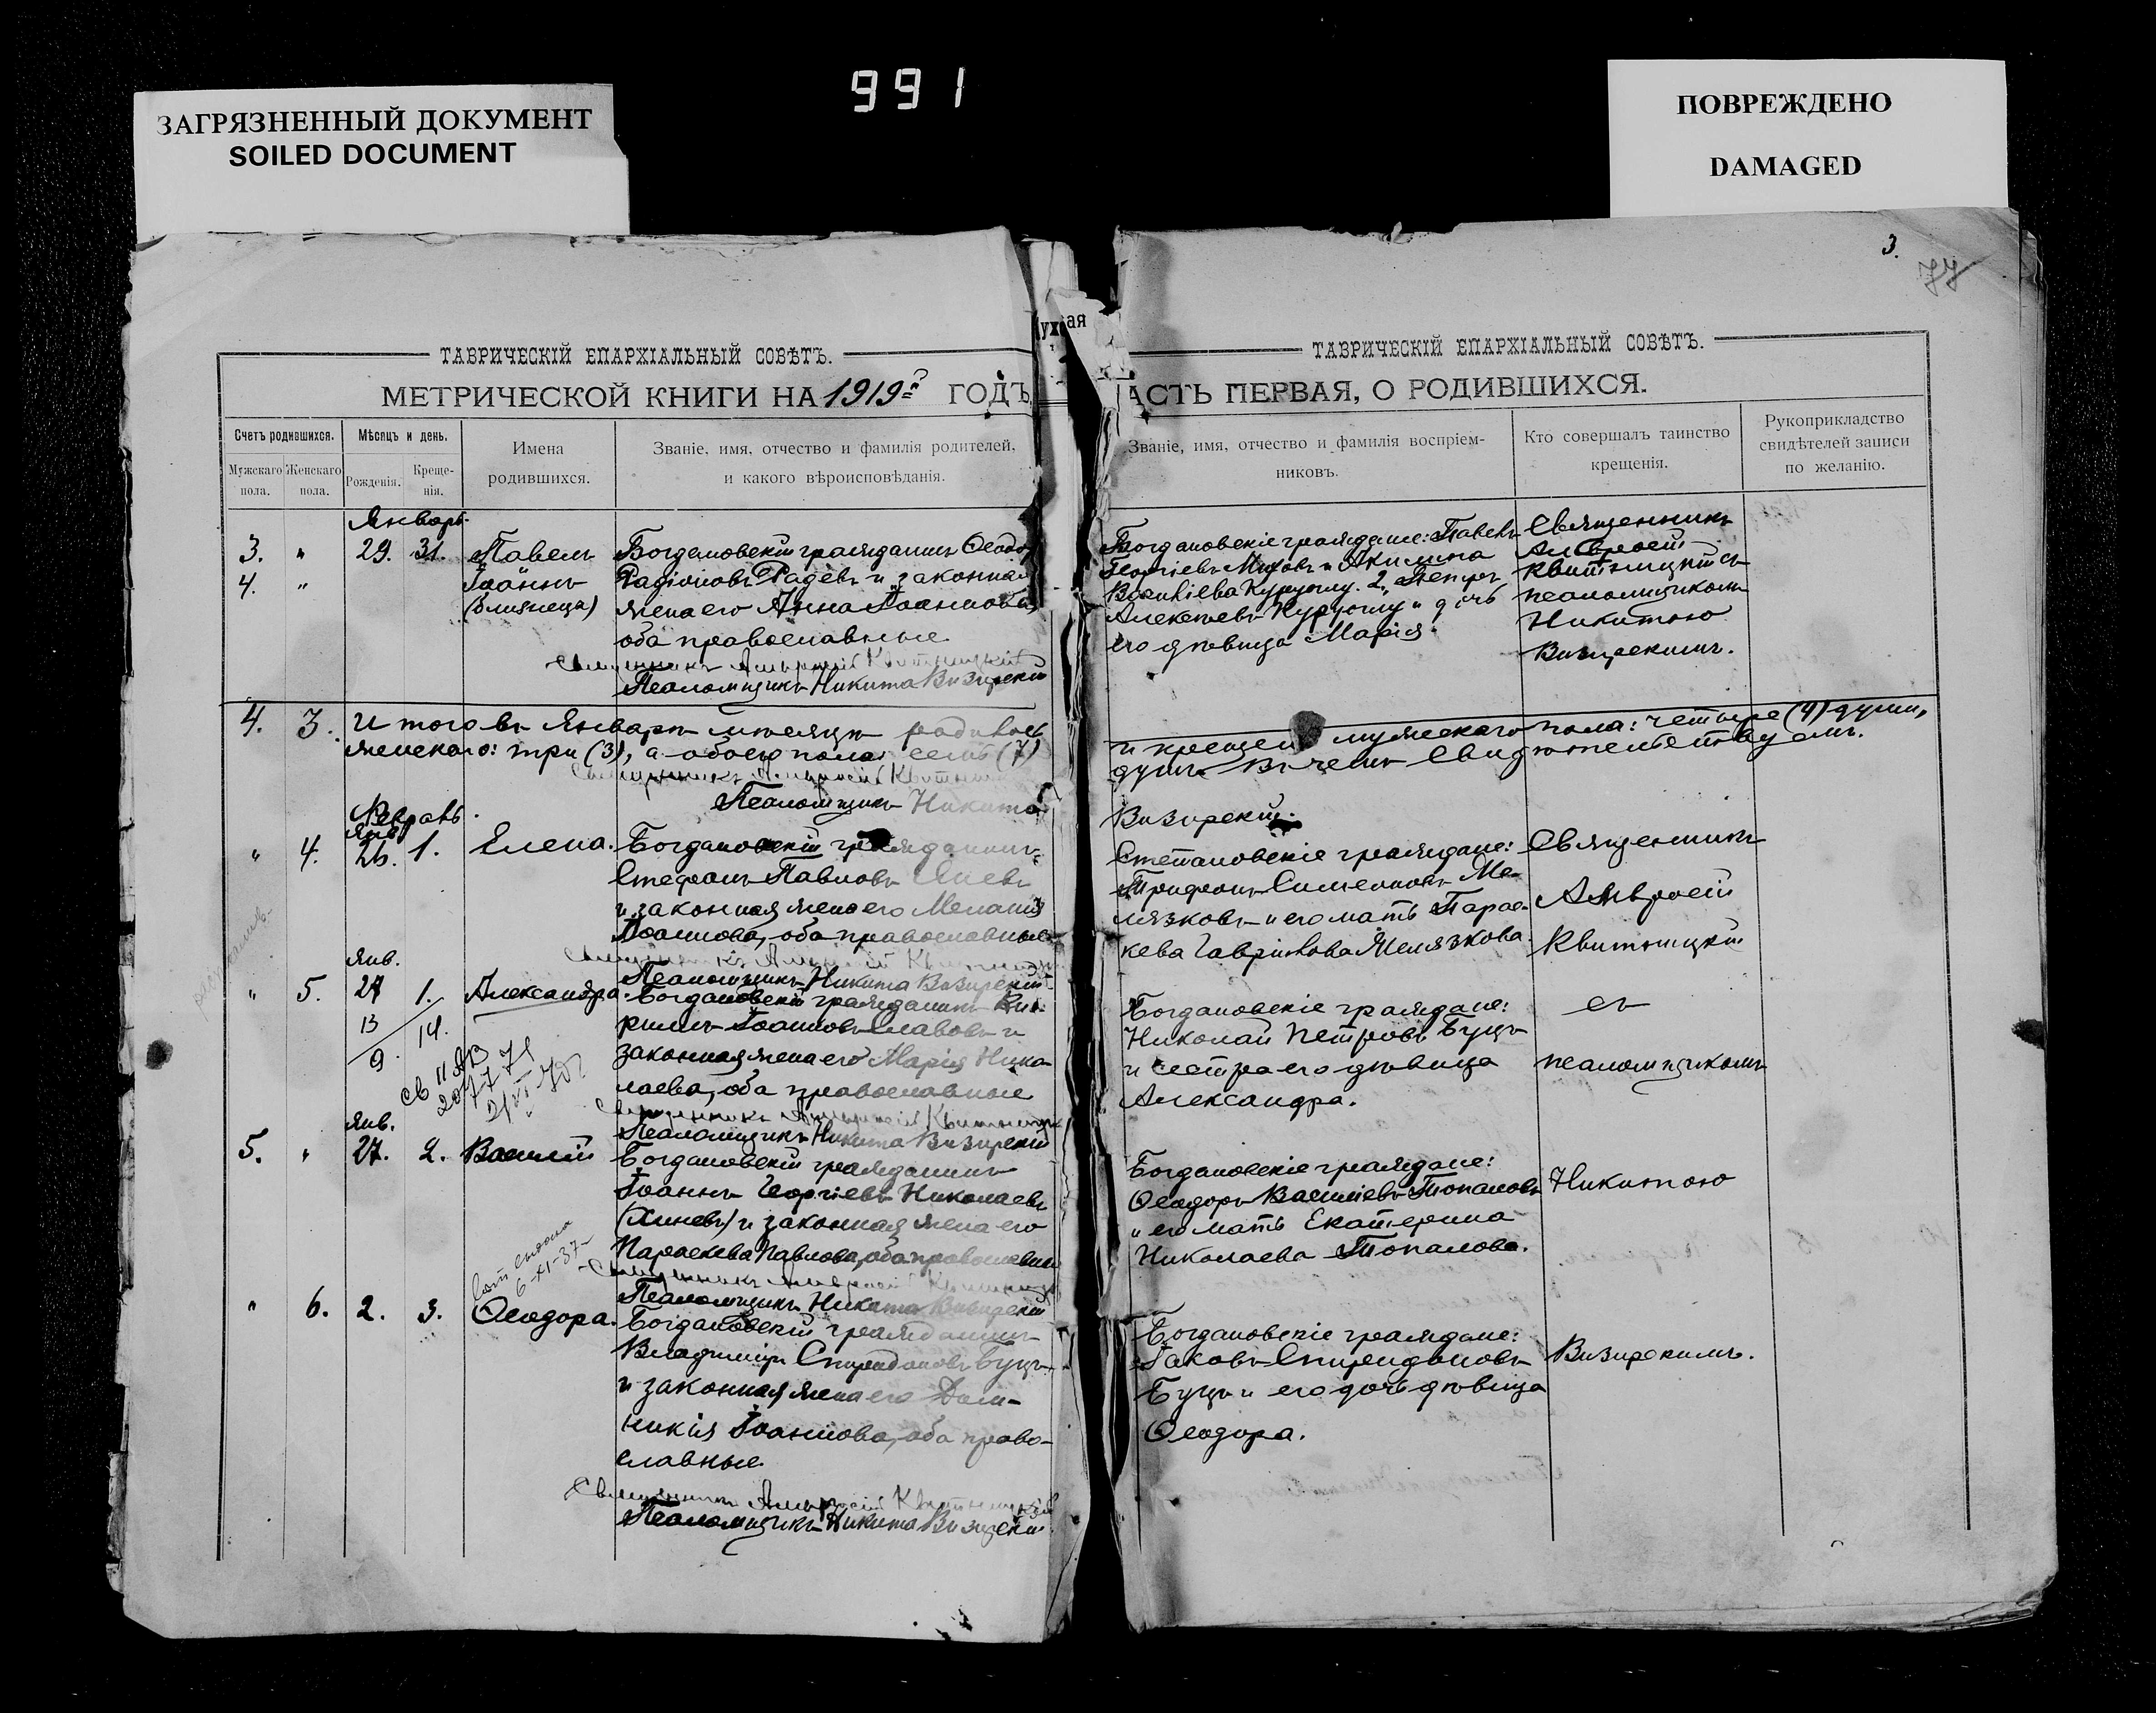 991
ЗАГРЯЗНЕННЫЙ ДОКУМЕНТ
SOILED DOCUMENT
ПОВРЕЖДЕНО
DAMAGED
3.
77
ТАВРИЧЕСКІЙ ЕПАРХІАЛЬНЫЙ СОВѢТЪ.
МЕТРИЧЕСКОЙ КНИГИ НА 1919 ГОДЪ
Счетъ родившихся.
Мужскаго пола.
Женскаго пола.
Мѣсяцъ и день.
Рожденія.
Креще-
нія.
Имена
родившихся.
Званіе, имя, отчество и фамилія родителей,
и какого вѣроисповѣданія.
Январь.
3. " 29. 31. Павелъ
4. " Іоаннъ
(близнецы)
Богдановскій гражданинъ Ѳеодоръ
Радіоновъ Радевъ и законная
жена его Анна Іоаннова,
оба православные
Священникъ Амвросій Квитницкій
Псаломщикъ Никита Визирскій
4. 3. Итого въ Январѣ мѣсяцѣ родилось
женскаго: три (3), а обоего пола семь (7)
Священникъ Амвросій Квитницкій
Псаломщикъ Никита
Февраль.
Янв.
" 4. 26. 1. Елена.
Богдановскій гражданинъ
Стефанъ Павловъ
и законная жена его Меланія
Іоаннова, оба православные
Священникъ Амвросій
Псаломщикъ Никита Визирскій
Янв.
" 5. 27 1. Александра.
13 14.
9.
Богдановскій гражданинъ Ки-
риллъ Іоанновъ Славовъ и
законная жена его Марія Нико-
лаева, оба православные
Священникъ Амвросій Квитницкій
Псаломщикъ Никита Визирскій
Янв.
5. " 27. 2. Василій
Богдановскій гражданинъ
Іоаннъ Георгіевъ Николаевъ
(Хиневъ) и законная жена его
Параскева Павлова, оба православные
Священникъ Амвросій
Псаломщикъ Никита Визирскій
6-XI-37
" 6. 2. 3. Ѳеодора.
Богдановскій гражданинъ
Владиміръ Спиридоновъ Буцъ
и законная жена его Дом-
никія Іоаннова, оба право-
славные
Священникъ Амвросій Квитницкій
Псаломщикъ Никита Визирскій
ТАВРИЧЕСКІЙ ЕПАРХІАЛЬНЫЙ СОВѢТЪ.
АСТЬ ПЕРВАЯ, О РОДИВШИХСЯ.
Званіе, имя, отчество и фамилія воспріем-
никовъ.
Кто совершалъ таинство
крещенія.
Рукоприкладство
свидѣтелей записи
по желанію.
Богдановскіе граждане: Павелъ
Георгіевъ и Акилина
Васильева Куруоглу. 2, Петръ
Алексѣевъ Куруоглу и дочь
его дѣвица Марія.
Священникъ
Амвросій
Квитницкій съ
псаломщикомъ
Никитою
Визирскимъ.
и крещено мужескаго пола: четыре (4) души,
душъ. Въ чемъ свидѣтельствуемъ.
Визирскій.
Степановскіе граждане:
Трифонъ Симеоновъ Же-
лязковъ и его мать Парас-
кева Гаврилова Желязкова.
Священникъ
Амвросій
Квитницкій
Богдановскіе граждане:
Николай Петровъ Буцъ
и сестра его дѣвица
Александра.
съ
псаломщикомъ
Богдановскіе граждане:
Ѳеодоръ Василіевъ Топаловъ
и его мать Екатерина
Николаева Топалова.
Никитою
Богдановскіе граждане:
Іаковъ Спиридоновъ
Буцъ и его дочь дѣвица
Ѳеодора.
Визирскимъ.